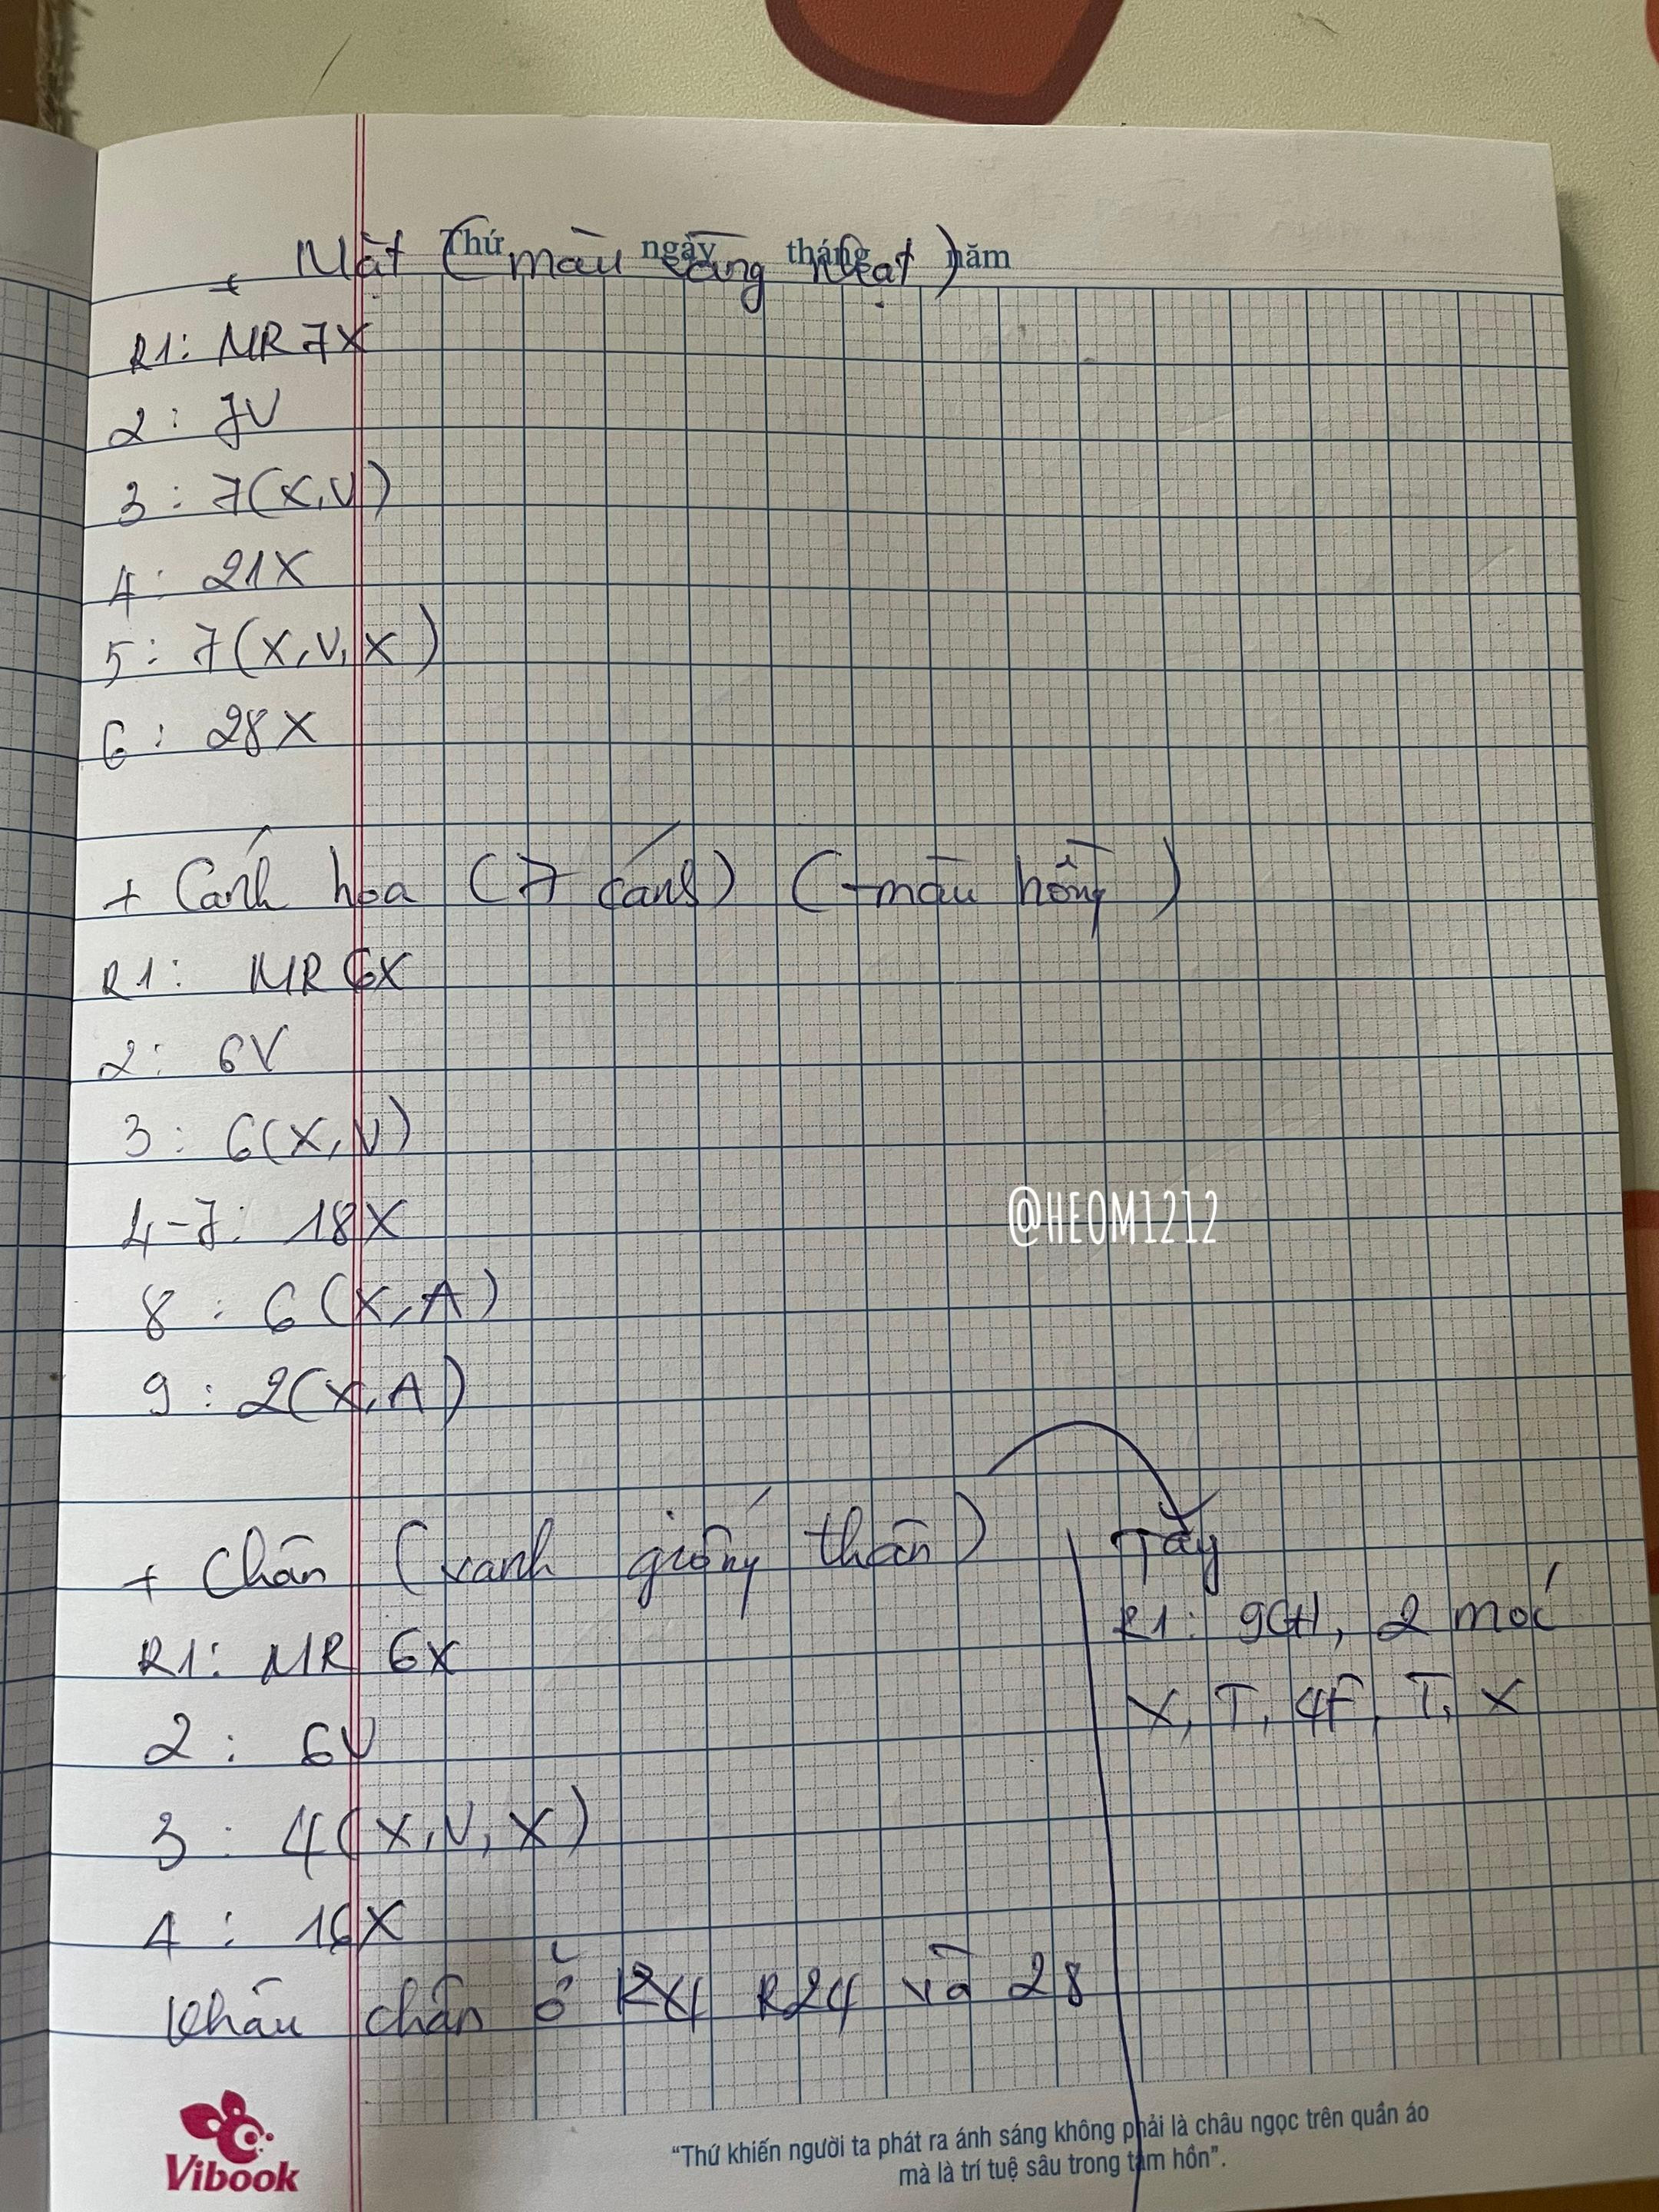 Thứ ngày tháng năm
+ Mặt (màu vàng nhạt)
R1: MR 7X
2: 7V
3: 7(X,V)
4: 21X
5: 7(X,V,X)
6: 28X
+ Cánh hoa (7 cánh) (màu hồng)
R1: MR 6X
2: 6V
3: 6(X,V)
4-7: 18X
@HEOM1212
8: 6(X,A)
9: 2(X,A)
+ Chân (xanh giống thân)
R1: MR 6X
2: 6V
3: 4(X,V,X)
4: 16X
Khâu chân ở R24 và 28
Tay
R1: 9CH, 2 móc
X, T, 4F, T, X
Vibook
"Thứ khiến người ta phát ra ánh sáng không phải là châu ngọc trên quần áo
mà là trí tuệ sâu trong tâm hồn".